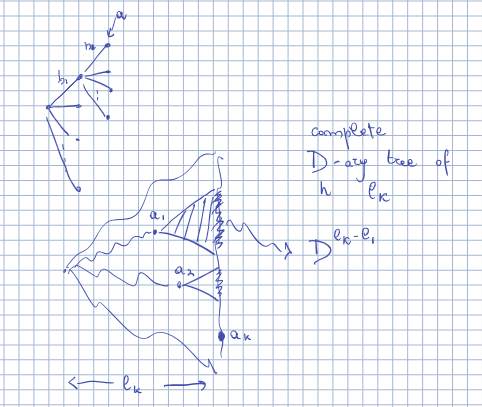 a
b₁
complete
D-ary tree of
h lₖ
a₁
D^{lₖ-l₁}
a₂
aₖ
lₖ